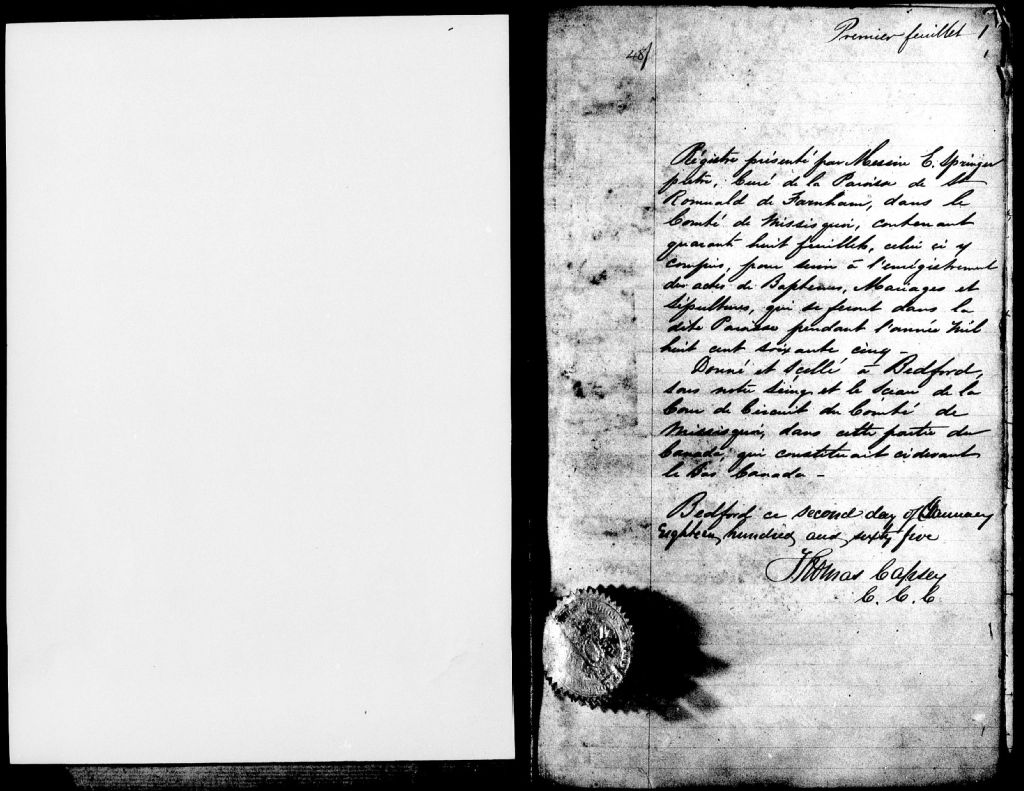 Premier feuillet 1
48/
Régistre présenté par Messire E. Springer
ptre, Curé de la Paroisse de St
Romuald de Farnham, dans le
Comté de Missisquoi, contenant
quarante huit feuillets, celui ci y
compris, pour servir à l'enrégistrement
des actes de Baptemes, Mariages et
Sépultures, qui se feront dans la
dite Paroisse pendant l'année Mil
huit cent soixante cinq -
Donné et Scellé à Bedford,
sous notre Seing et le Sceau de la
Cour de Circuit du Comté de
Missisquoi, dans cette partie du
Canada, qui constituait ci devant
le Bas Canada -
Bedford ce second day of January
Eighteen hundred and sixty five
Thomas Capsey
C. C. C